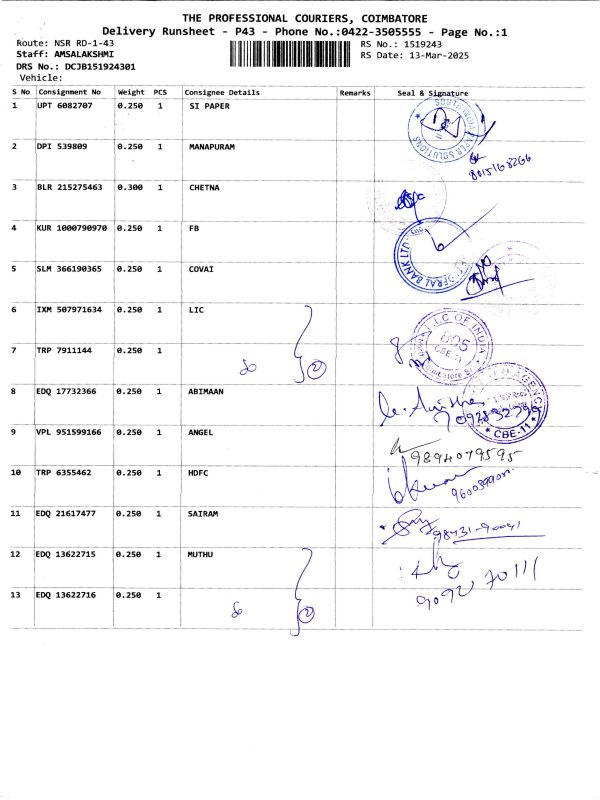 THE PROFESSIONAL COURIERS, COIMBATORE
Delivery Runsheet - P43 - Phone No.:0422-3505555 - Page No.:1
Route: NSR RD-1-43 RS No.: 1519243
Staff: AMSALAKSHMI RS Date: 13-Mar-2025
DRS No.: DCJB151924301
Vehicle:
S No Consignment No Weight PCS Consignee Details Remarks Seal & Signature
1 UPT 6082707 0.250 1 SI PAPER
2 DPI 539809 0.250 1 MANAPURAM
8015168266
3 BLR 215275463 0.300 1 CHETNA
4 KUR 1000790970 0.250 1 FB
5 SLM 366190365 0.250 1 COVAI
6 IXM 507971634 0.250 1 LIC
L.I.C OF INDIA
CBE-11
7 TRP 7911144 0.250 1
2
8 EDQ 17732366 0.250 1 ABIMAAN
CBE-11
9 VPL 951599166 0.250 1 ANGEL
9894079595
10 TRP 6355462 0.250 1 HDFC
11 EDQ 21617477 0.250 1 SAIRAM
98431-90041
12 EDQ 13622715 0.250 1 MUTHU
13 EDQ 13622716 0.250 1
2
9092 70111